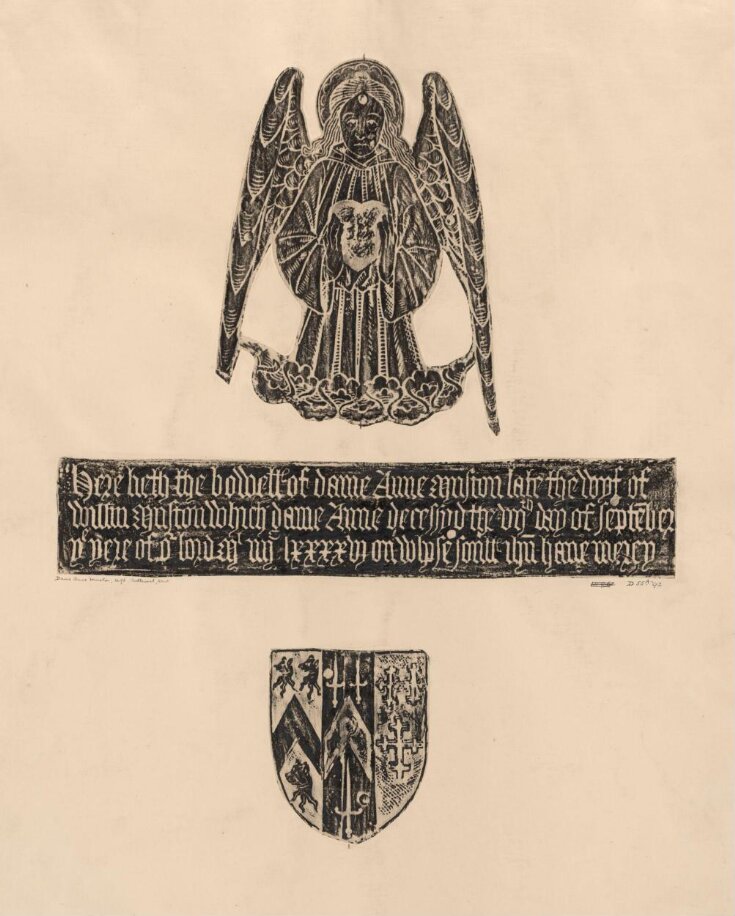 Here lieth the bowell of dame Anne Muston late the wyf of
Willm Muston which dame Anne decessyd the vijth day of Septeber
yͤ yere of oͬ lord Mˡ iiijᶜ lxxxxvj on whose soull ihu have mercy
Dame Anne Muston,
D 550 '42